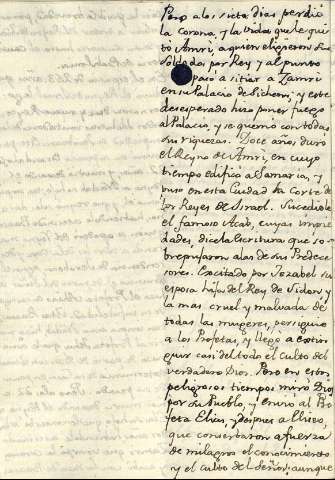 Pero a los siete dias perdió
la corona, y la vida, que le qui
tó Amri, a quien eligieron sus
Soldados por Rey y al punto
pasó a sitiar a Zamri
en su Palacio de Sichem, y este
desesperado hizo poner fuego
al Palacio, y se quemó con todas
sus riquezas. Doce años duró
el Reyno de Amri, en cuyo
tiempo edificó a Samaria, y
puso en esta Ciudad la Corte de
los Reyes de Israel. Sucediole
el famoso Acab, cuyas impie
dades, dice la Escritura que so
brepujaron a las de sus Predece
sores. Excitado por Jezabel su
esposa hija del Rey de Sidon, y
la mas cruel y malvada de
todas las mugeres, persiguio
a los Profetas, y llegó a extin
guir casi del todo el culto del
verdadero Dios. Pero en estos
peligrosos tiempos miró Dios
por su Pueblo, y envió al Pro
feta Elias, y despues a Eliseo,
que conservaron a fuerza
de milagros el conocimiento
y el culto del Señor; aunque